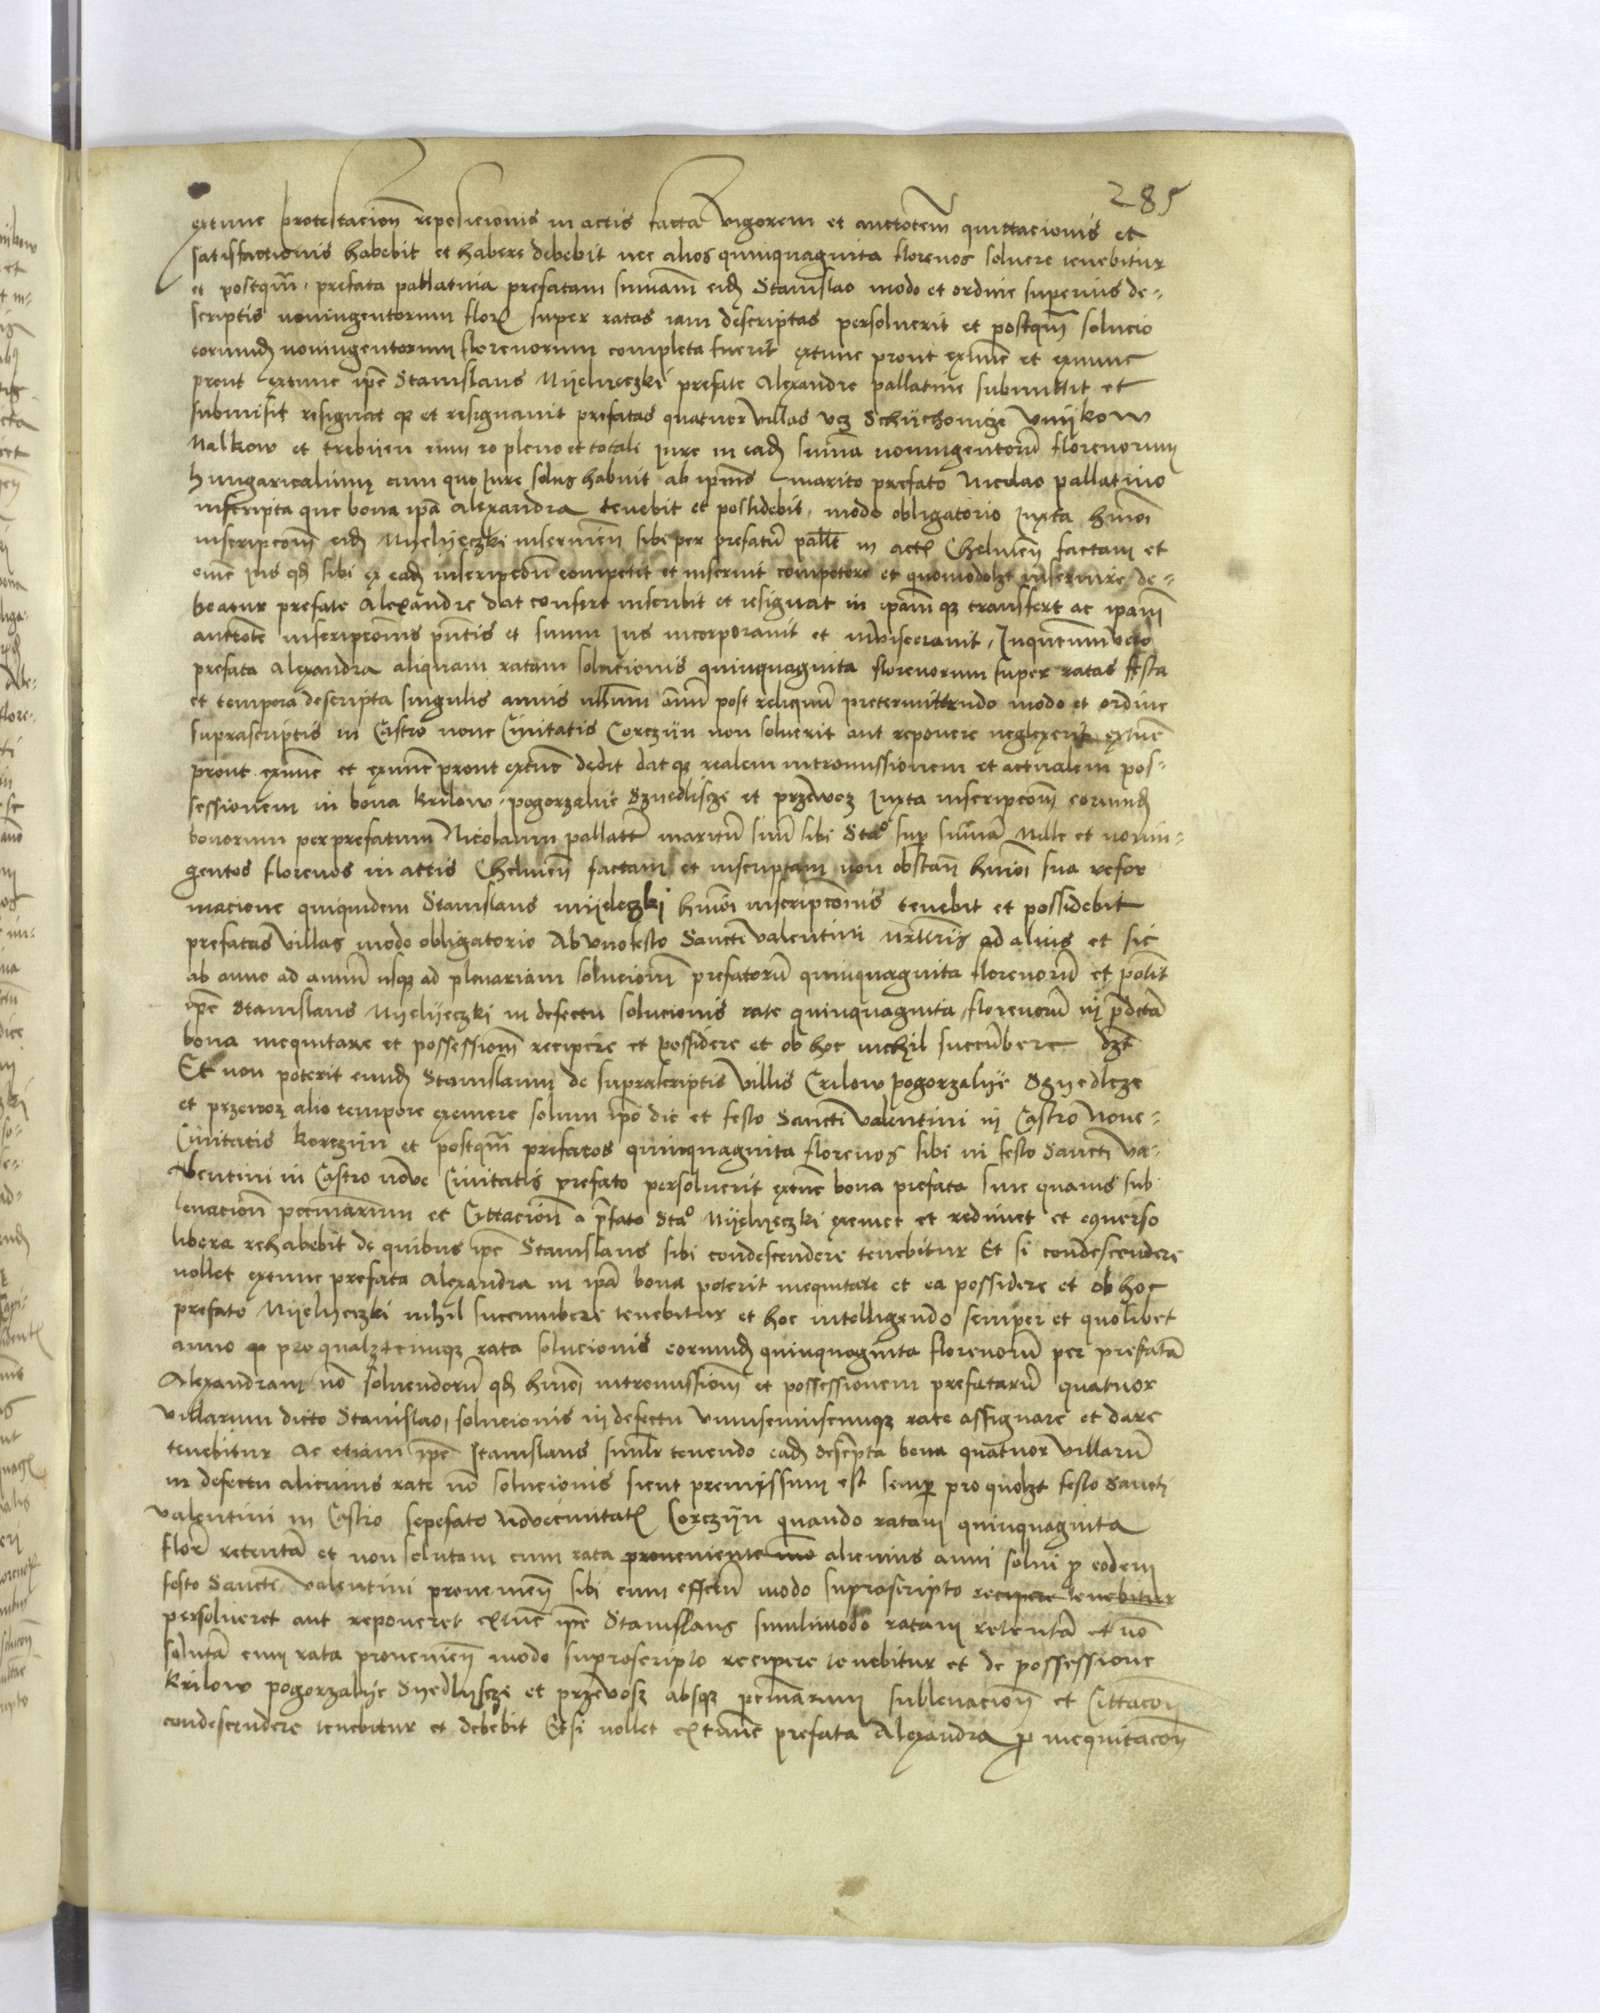 285
extunc protestacionem reposicionis in actis facta vigorem et auctoritatem quittacionis et
satisfactionis habebit et habere debebit nec alios quinquaginta florenos soluere tenebitur
et postqm̃ prefata pallatina prefatam sum̃am eidẽ Stanislao modo et ordine superius de-
scriptis noningentorum florẽ super ratas iam descriptas persoluerit et postqm̃ solucio
eorundẽ noningentorum florenorum completa fuerit extunc prout exnũc et exnunc
prout extunc ip̃e Stanislaus Myelyeczki prefate Alexandre pallatine submittit et
submisit resignat qz et resignauit prefatas quatuor villas vcz Schÿchonige Vnijkow
Malkow et trebuen cum eo pleno et totali Iure in eadẽ sum̃a noningentorũ florenorum
hungaricalium cum quo Iure solus habuit ab ipius marito prefato Nicolao pallatino
inscripta que bona ip̃a Alexandra tenebit et possidebit modo obligatorio Iuxta hmõi
inscripcom̃ eidẽ Myelyeczki inseruieñ sibi per prefatũ pallt̃ in actis Chelmeñ factam et
om̃e ius qd̃ sibi ex eadẽ inscripcõne competit et inseruit competere et quomodolzt inseruire de-
beatur prefate Alexandre dat confert inscribit et resignat in ipam̃ qz transfert ac ipam̃
auttõte inscripcõnis pñtis et suum ius incorporauit et inuisceraũit Inquantum vero
prefata Alexandra aliquam ratam solucionis quinquaginta florenorum super ratas festa
et tempora descripta singulis annis ullum annũ post reliquũ pretermittendo modo et ordine
suprascriptis in Castro noue Ciuitatis Corczÿn non soluerit aut reponere neglexerit extunc
prout exnũc et exnũc prout extũc dedit dat qz realem intromissionem et actualem pos-
sessionem in bona Krilow pogorzalie Sznedliscze et przewoz Iuxta inscripcom̃ eorundẽ
bonorum per prefatum Nicolaum pallatt̃ maritũ suũ sibi Sta᷒ sup sum̃a Mille et nonin-
gentos florenos in actis Chelmeñ factam et inscriptam non obstañ hmõi sua refor
macione quiquidem Stanislaus myeleczki hmõi inscripcõnis tenebit et possidebit
prefatas villas modo obligatorio Ab vno festo Sancti valentini mr̃tiris ad alius et sic
ab anno ad annũ usqz ad plenariam solucionẽ prefatorũ quinquaginta florenorũ et poterit
ip̃e Stanislaus Myelyeczki in defectu solucionis rate quinquaginta florenorũ in p̃dcta
bona inequitare et possessionẽ recipere et possidere et ob hoc nichil succũbere dzt
Et non poterit eundẽ Stanislaum de suprascriptis Villis Crilow pogorzalye Szyedlcze
et przewoz alio tempore eximere solum ip̃o die et festo Sancti valentini in Castro noue-
Ciuitatis Korczÿn et postqm̃ prefatos quinquaginta florenos sibi in festo Sancti va-
lentini in Castro noue Ciuitatis prefato persoluerit extũc bona prefata sine quauis sub
leuacionẽ pecuniarum et Cittacionẽ a p̃fato Sta᷒ Myelyeczki eximet et redimet et equerso
libera rehabebit de quibus ip̃e Stanislaus sibi condescendere tenebitur Et si condescendere
nollet extunc prefata Alexandra in ip̃a bona poterit inequitare et ea possidere et ob hoc
prefato Myelyeczki nihil succumbere tenebitur et hoc intelligendo semper et quolibet
anno pro qualztcunqz rata solucionis eorundẽ quinquaginta florenorũ per prefatã
Alexandram nõ soluendorũ qd̃ hmõi intromissionẽ et possessionem prefatarũ quatuor
villarum dicto Stanislao solucionis in defectu vniuscuiuscunqz rate assignare et dare
tenebitur Ac etiam ip̃e Stanislaus similr̃ tenendo eadẽ descripta bona quatuor villarũ
in defectu alicuius rate nõ solucionis sicut premissum est semp pro quolzt festo Sancti
valentini in Castro sepefato Nouecitatis Corczÿn quando ratam quinquaginta
florẽ retentã et non solutam cum rata proueniente alicuius anni solui p eodem
festo Sancti valentini proueniẽn sibi cum effectu modo suprascripto recipere tenebitur
persolueret aut reponeret extũc ip̃e Stanislaus simili modo ratam retentã et nõ
solutã cum rata proueniẽn modo suprascripto recipere tenebitur et de possessione
Krilow pogorzalye Syedlyscze et przewosz absqz pecuniarum subleuacionẽ et Cittacoñ
condescendere tenebitur et debebit Et si nollet extunc prefata Alexandra p inequitacoñ